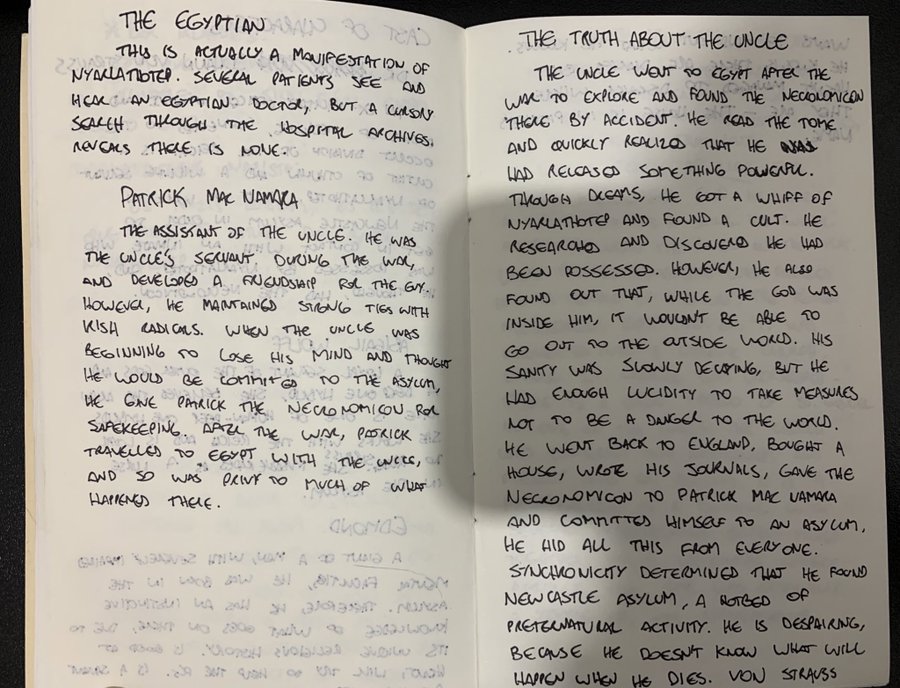 THE EGYPTIAN
THIS IS ACTUALLY A MANIFESTATION OF
NYARLATHOTEP. SEVERAL PATIENTS SEE AND
HEAR AN EGYPTIAN DOCTOR, BUT A CURSORY
SEARCH THROUGH THE HOSPITAL ARCHIVES
REVEALS THERE IS NONE.
PATRICK MAC NAMARA
THE ASSISTANT OF THE UNCLE. HE WAS
THE UNCLE'S SERVANT DURING THE WAR,
AND DEVELOPED A FRIENDSHIP FOR THE GUY.
HOWEVER, HE MAINTAINED STRONG TIES WITH
IRISH RADICALS. WHEN THE UNCLE WAS
BEGINNING TO LOSE HIS MIND AND THOUGHT
HE WOULD BE COMMITED TO THE ASYLUM,
HE GAVE PATRICK THE NECRONOMICON FOR
SAFEKEEPING. AFTER THE WAR, PATRICK
TRAVELLED TO EGYPT WITH THE UNCLE,
AND SO WAS PRIVY TO MUCH OF WHAT
HAPPENED THERE.
THE TRUTH ABOUT THE UNCLE
THE UNCLE WENT TO EGYPT AFTER THE
WAR TO EXPLORE AND FOUND THE NECRONOMICON
THERE BY ACCIDENT. HE READ THE TOME
AND QUICKLY REALIZED THAT HE
HAD RELEASED SOMETHING POWERFUL.
THROUGH DREAMS, HE GOT A WHIFF OF
NYARLATHOTEP AND FOUND A CULT. HE
RESEARCHED AND DISCOVERED HE HAD
BEEN POSSESSED. HOWEVER, HE ALSO
FOUND OUT THAT, WHILE THE GOD WAS
INSIDE HIM, IT WOULDN'T BE ABLE TO
GO OUT TO THE OUTSIDE WORLD. HIS
SANITY WAS SLOWLY DECAYING, BUT HE
HAD ENOUGH LUCIDITY TO TAKE MEASURES
NOT TO BE A DANGER TO THE WORLD.
HE WENT BACK TO ENGLAND, BOUGHT A
HOUSE, WROTE HIS JOURNALS, GAVE THE
NECRONOMICON TO PATRICK MAC NAMARA
AND COMMITTED HIMSELF TO AN ASYLUM.
HE HID ALL THIS FROM EVERYONE.
SYNCHRONICITY DETERMINED THAT HE FOUND
NEWCASTLE ASYLUM, A HOTBED OF
PRETERNATURAL ACTIVITY. HE IS DESPAIRING,
BECAUSE HE DOESN'T KNOW WHAT WILL
HAPPEN WHEN HE DIES. VON STRAUSS